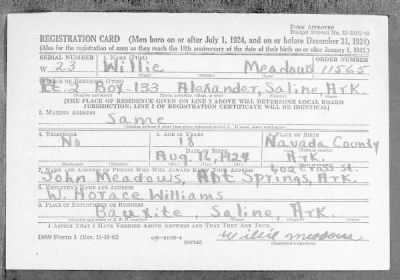 FORM APPROVED
REGISTRATION CARD (Men born on or after July 1, 1924, and on or before December 31, 1924)
(Also for the registration of men as they reach the 18th anniversary of the date of their birth on or after January 1, 1943.)
SERIAL NUMBER 1. NAME (Print) ORDER NUMBER
W 23 Willie Meadows 11565
2. PLACE OF RESIDENCE (Print)
Rt. 2 Box 133 Alexander, Saline, Ark.
[THE PLACE OF RESIDENCE GIVEN ON LINE 2 ABOVE WILL DETERMINE LOCAL BOARD
JURISDICTION; LINE 2 OF REGISTRATION CERTIFICATE WILL BE IDENTICAL]
3. MAILING ADDRESS
Same
4. TELEPHONE 5. AGE IN YEARS 6. PLACE OF BIRTH
No 18 Navada County
DATE OF BIRTH
Aug. 1924 Ark.
7. NAME AND ADDRESS OF PERSON WHO WILL ALWAYS KNOW YOUR ADDRESS
John Meadows, Hot Springs, Ark.
8. EMPLOYER'S NAME AND ADDRESS
W. Horace Williams
9. PLACE OF EMPLOYMENT OR BUSINESS
Bauxite, Saline, Ark.
I AFFIRM THAT I HAVE VERIFIED ABOVE ANSWERS AND THAT THEY ARE TRUE.
DSS Form 1 (OVER) Willie meadows